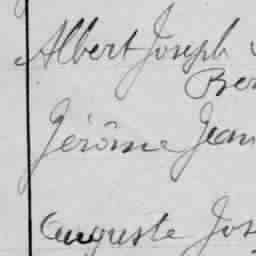 Albert Joseph
Ber
Jérôme Jean
Auguste Jos